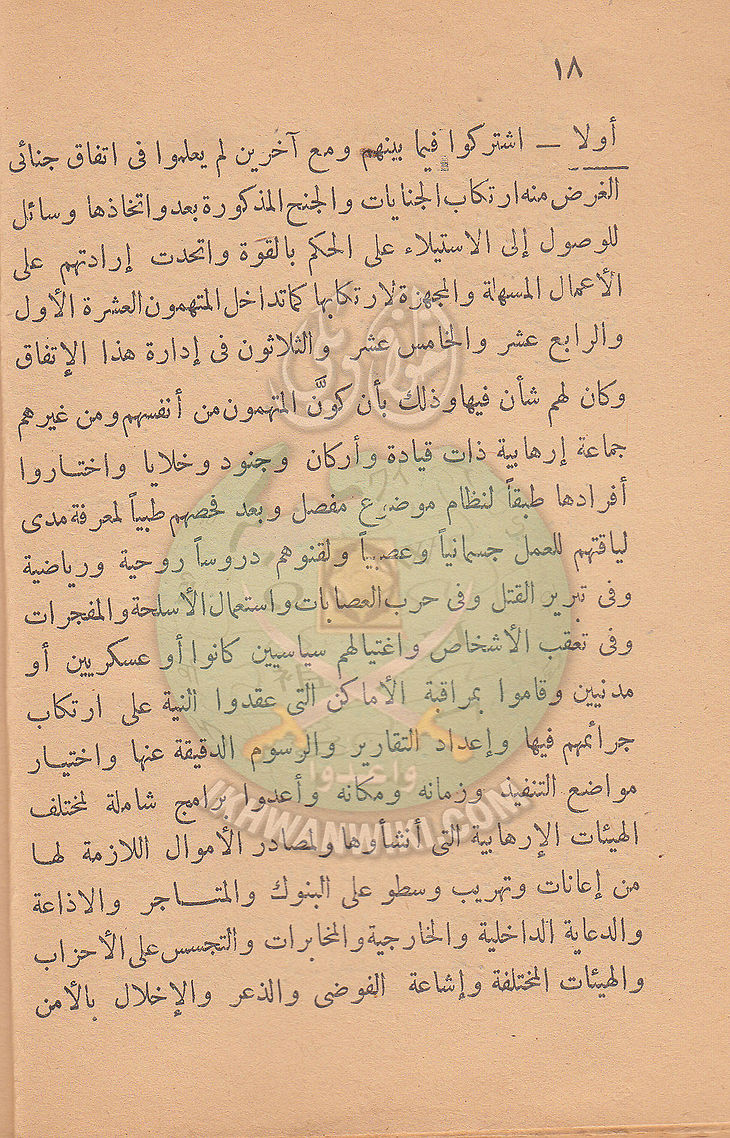 ١٨
أولا — اشتركوا فيما بينهم ومع آخرين لم يعلموا فى اتفاق جنائى
الغرض منه ارتكاب الجنايات والجنح المذكورة بعد واتخاذها وسائل
للوصول إلى الاستيلاء على الحكم بالقوة واتحدت إرادتهم على
الأعمال المسهلة والمجهزة لارتكابها كما تداخل المتهمون العشرة الأول
والرابع عشر والخامس عشر والثلاثون فى إدارة هذا الإتفاق
وكان لهم شأن فيها وذلك بأن كونَّ المتهمون من أنفسهم ومن غيرهم
جماعة إرهابية ذات قيادة وأركان وجنود وخلايا واختاروا
أفرادها طبقاً لنظام موضوع مفصل وبعد فحصهم طبياً لمعرفة مدى
لياقتهم للعمل جسمانياً وعصبياً ولقنوهم دروساً روحية ورياضية
وفى تبرير القتل وفى حرب العصابات واستعمال الأسلحة والمفجرات
وفى تعقب الأشخاص واغتيالهم سياسيين كانوا أو عسكريين أو
مدنيين وقاموا بمراقبة الأماكن التى عقدوا النية على ارتكاب
جرائمهم فيها وإعداد التقارير والرسوم الدقيقة عنها واختيار
مواضع التنفيذ وزمانه ومكانه وأعدوا برامج شاملة لمختلف
الهيئات الإرهابية التى أنشأوها ولمصادر الأموال اللازمة لها
من إعانات وتهريب وسطو على البنوك والمتاجر والاذاعة
والدعاية الداخلية والخارجية والمخابرات والتجسس على الأحزاب
والهيئات المختلفة وإشاعة الفوضى والذعر والإخلال بالأمن
إخوان ويكى
وأعدوا
IKHWANWIKI.COM